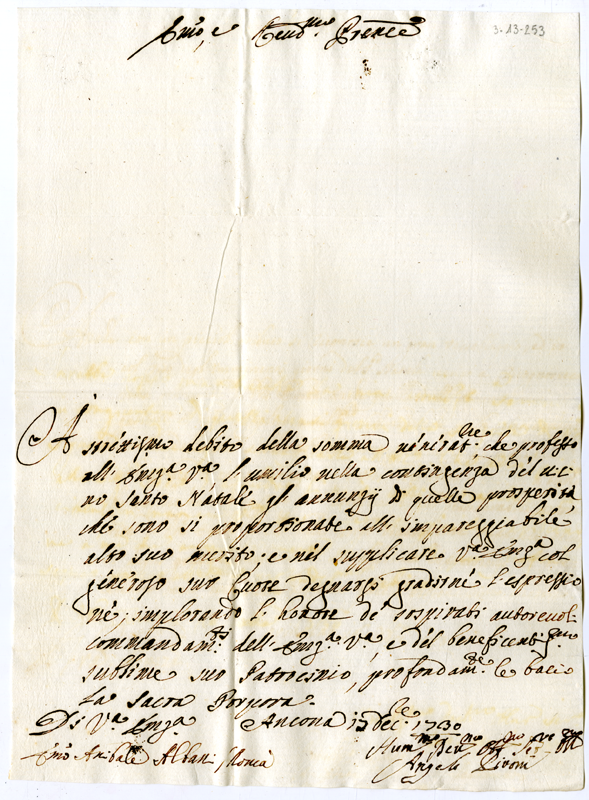 Emo, e Reudmo Prence
3-13-253
A strettissmo debito della somma venerat.ne che professo
all' Emza. Va. l' umilio nella contingenza del
no Santo Natale gl' annunzij di quelle prosperità
che sono si proportionate all' impareggiabile
alto suo merito; e nel supplicare Va. Emza col
generoso suo Cuore degnarsi gradirne l' espressio
ne, implorando l' honore de' sospirati autorevol.
commandam.ti dell' Emza. Va. e del beneficentissmo
sublime suo Patrocinio, profondam.te le bacio
La Sacra Porpora.
Di Va. Emza. Ancona 15 Dec. 1730
Emo Anibale Albani / Roma
Hum.mo Dev.mo
Angelo